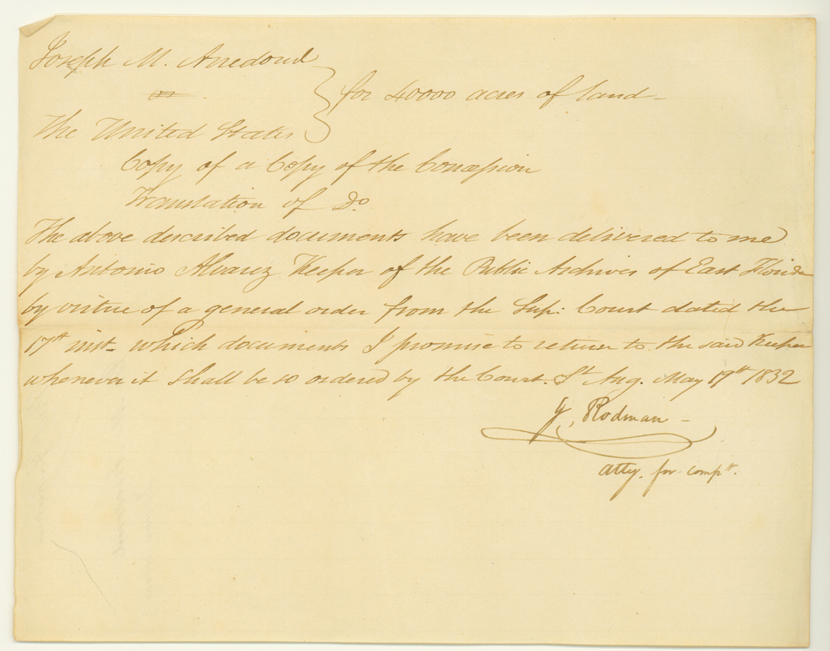 Joseph M. Arredondo
vs
for 40000 acres of land-
The United States
Copy of a Copy of the Concession
Translation of Do.
The above described documents have been delivered to me
by Antonio Alvarez Keeper of the Public Archives of East Florida
by virtue of a general order from the Sup: Court dated the
17th inst- which documents I promise to return to the said Keeper
whenever it shall be so ordered by the Court. St Aug. May 17th 1832
J, Rodman -
atty. for compt.